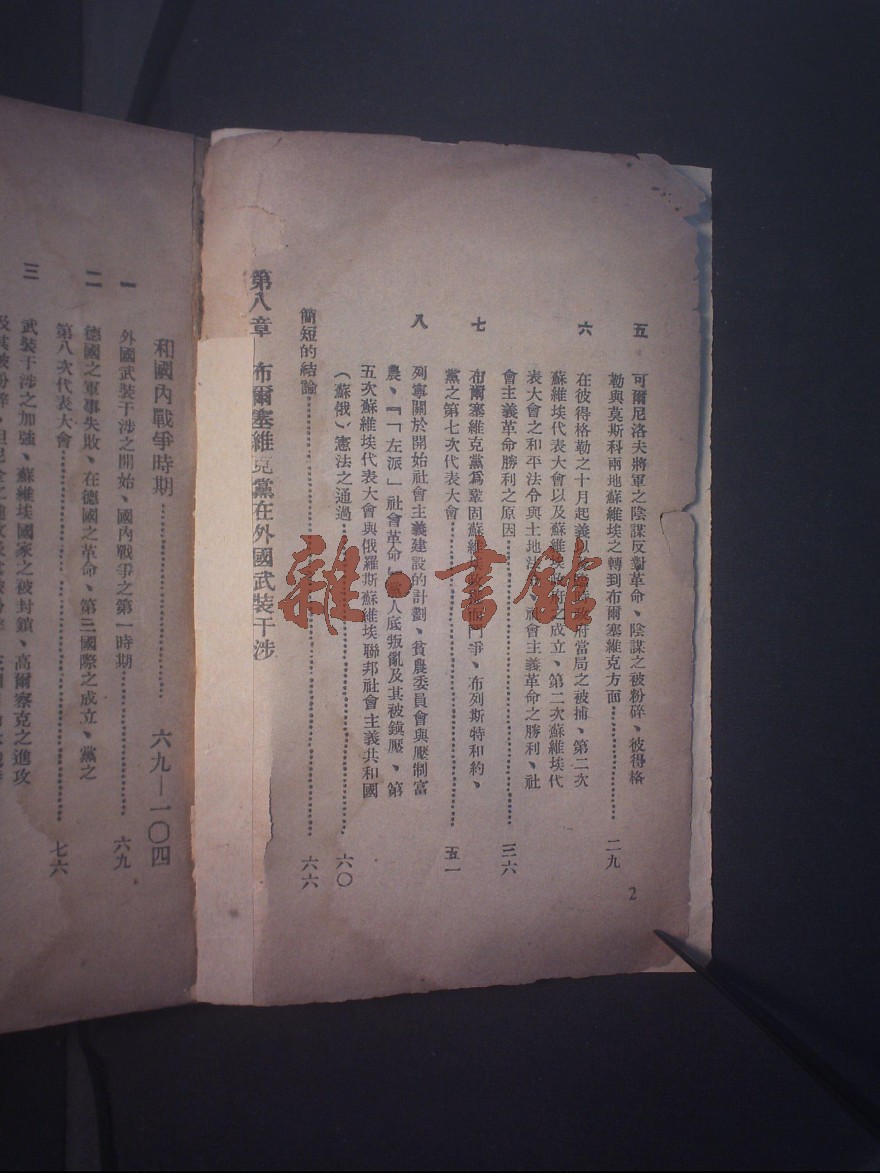 五 可爾尼洛夫將軍之陰謀反對革命、陰謀之被粉碎、彼得格
勒與莫斯科兩地蘇維埃之轉到布爾塞維克方面 二九
六 在彼得格勒之十月起義 政府當局之被捕、第二次
蘇維埃代表大會以及蘇維埃政府之成立、第二次蘇維埃代
表大會之和平法令與土地法令、社會主義革命之勝利、社
會主義革命勝利之原因 三六
七 布爾塞維克黨爲鞏固蘇維埃 鬥爭、布列斯特和約、
黨之第七次代表大會 五一
八 列寧關於開始社會主義建設的計劃、貧農委員會與壓制富
農、「「左派」社會革命」黨人底叛亂及其被鎮壓、第
五次蘇維埃代表大會與俄羅斯蘇維埃聯邦社會主義共和國
(蘇俄)憲法之通過 六〇
簡短的結論 六六
第八章 布爾塞維克黨在外國武裝干涉
和國內戰爭時期 六九—一〇四
一 外國武裝干涉之開始、國內戰爭之第一時期 六九
二 德國之軍事失敗、在德國之革命、第三國際之成立、黨之
第八次代表大會 七六
三 武裝干涉之加强、蘇維埃國家之被封鎖、高爾察克之進攻
及其被粉碎、
2
雜·書館